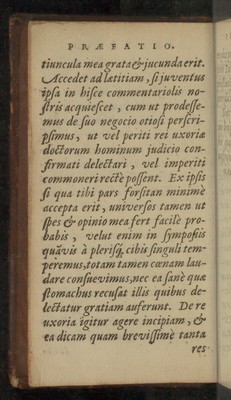 PRÆFATIO.
tiuncula mea grata & jucunda erit.
Accedet ad lætitiam, si juventus
ipsa in hisce commentariolis no-
stris acquiescet, cum ut prodesse-
mus de suo negocio otiosi perscri-
psimus, ut vel periti rei uxoriæ
doctorum hominum judicio con-
firmati delectari, vel imperiti
commoneri rectè possent. Ex ipsis
si qua tibi pars forsitan minimè
accepta erit, universos tamen ut
spes & opinio mea fert facilè pro-
babis, velut enim in symposiis
quāvis à plerisq; cibis singuli tem-
peremus, totam tamen cœnam lau-
dare consuevimus, nec ea sanè quæ
stomachus recusat illis quibus de-
lectatur gratiam auferunt. De re
uxoria igitur agere incipiam, &
ea dicam quam brevissimè tanta
res